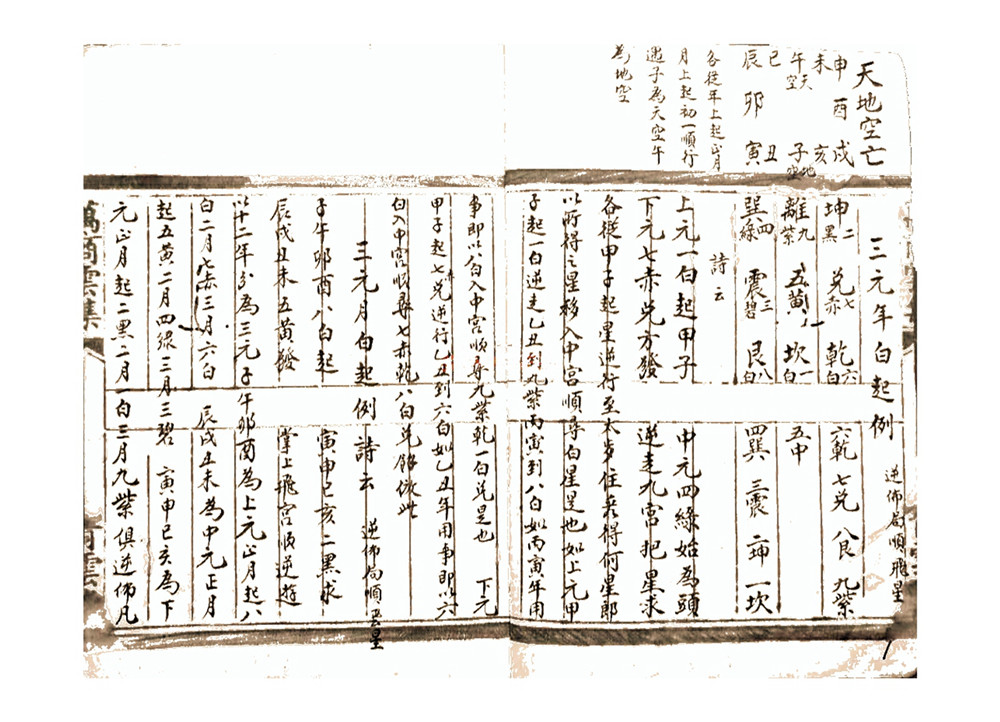 天地空亡
申 酉 戌
未 亥
午天空 子地空
巳 丑
辰 卯 寅
各從年上起正月
月上起初一順行
遇子為天空午
為地空
三元年白起例 逆佈局順飛星
坤二黑 兌七赤 乾六白 六乾 七兌 八艮 九紫
離九紫 五黃 坎一白 五中
巽四綠 震三碧 艮八白 四巽 三震 二坤 一坎
詩云
上元一白起甲子 中元四綠始為頭
下元七赤兌方發 逆走九宮把星求
各從甲子起星逆行至太歲住看得何星即
以所得之星移入中宮順尋白星是也如上元甲
子起一白逆走乙丑到九紫丙寅到八白如丙寅年用
事即以八白入中宮順尋九紫乾一白兌是也 下元
甲子起七兌逆行乙丑到六白如乙丑年用事即以六
白入中宮順尋七赤乾八白兌餘倣此
三元月白起例詩云 逆佈局順飛星
子午卯酉八白起 寅申巳亥二黑求
辰戌丑未五黃發 掌上飛宮順逆遊
以十二年分為三元子午卯酉為上元正月起八
白二月七赤三月六白 辰戌丑未為中元正月
起五黃二月四綠三月三碧 寅申巳亥為下
元正月起二黑二月一白三月九紫俱逆佈凡
萬商雲集
商雲
1